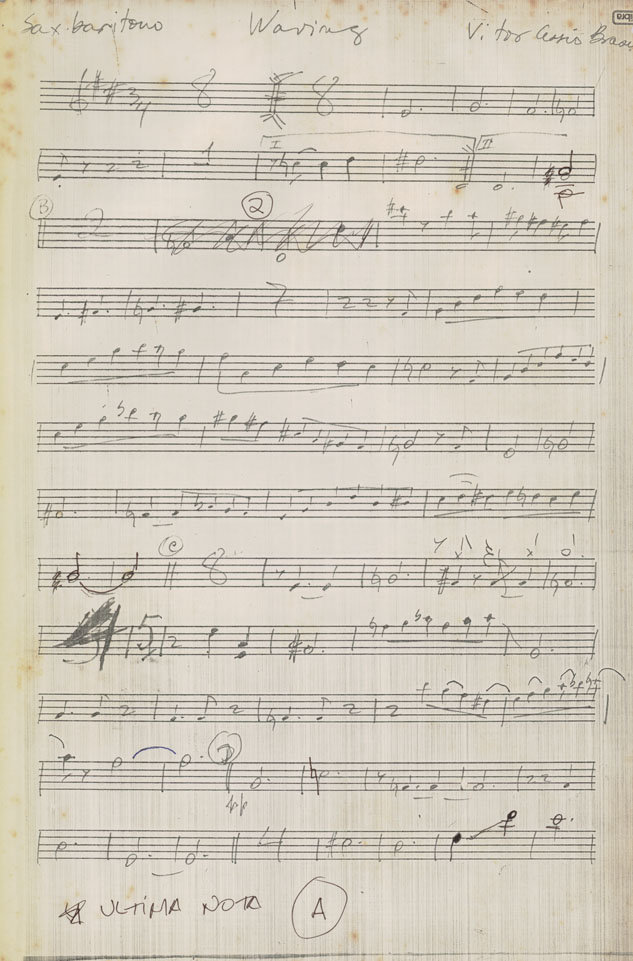 Sax. baritono Waving Vitor Assis Bras
3/4 8 8
1 I II
B 2 2
7
C 8
4 5
D
pp
4
ULTIMA NOTA A